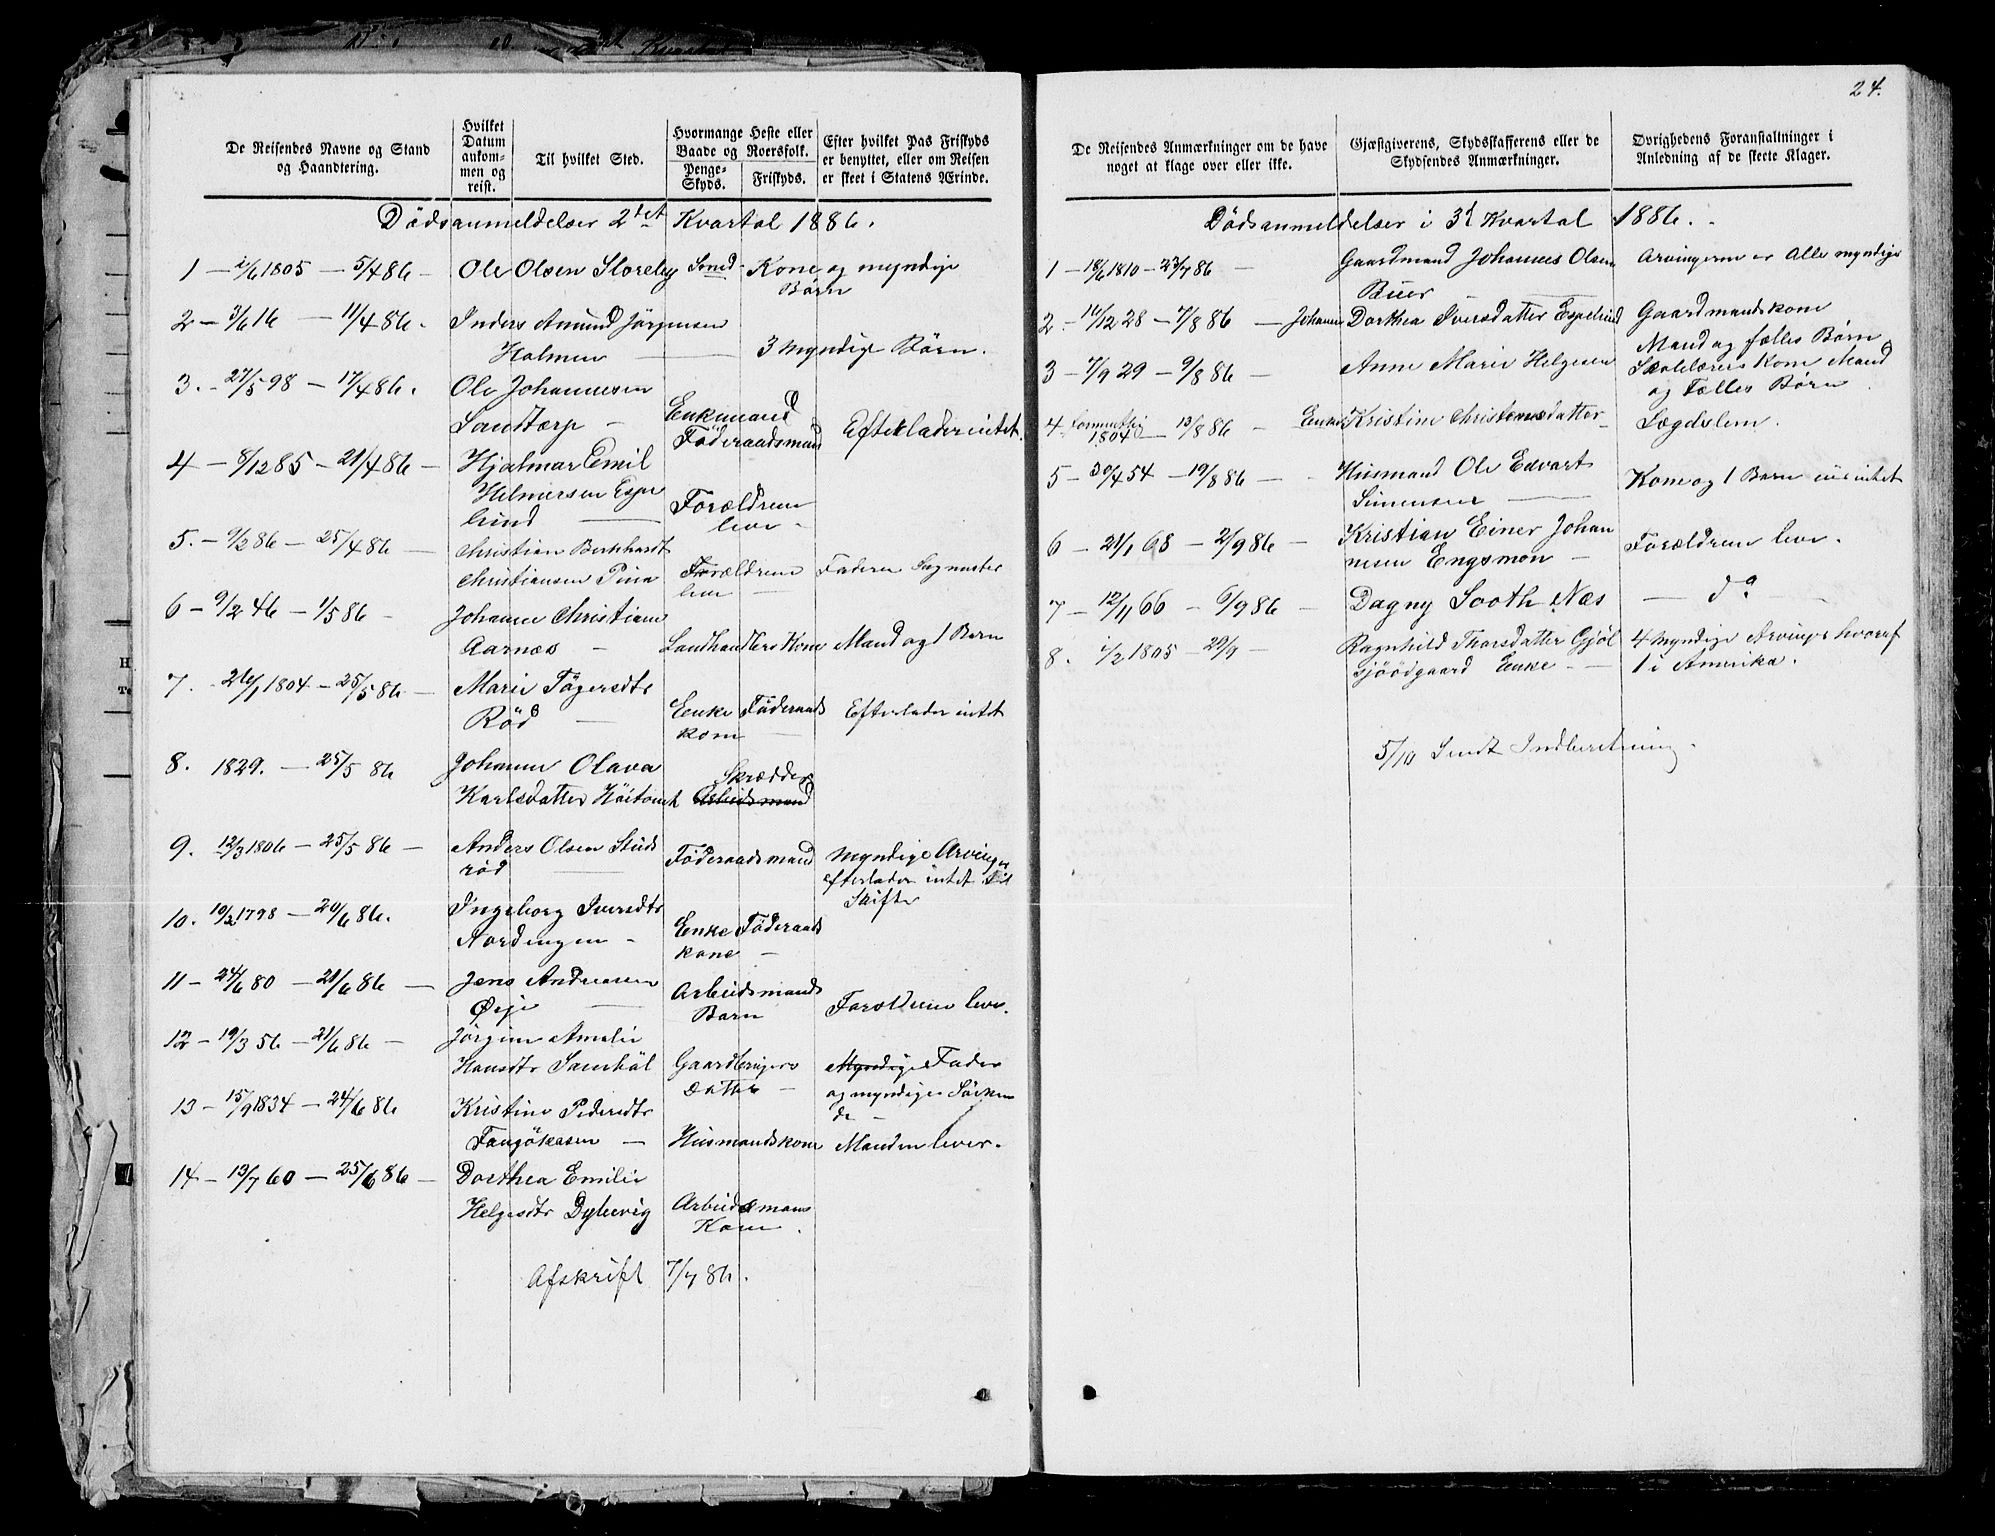 De Reisendes Navne og Stand
og Haandtering.
Hvilket
Datum
ankom-
men og
reist.
Til hvilket Sted.
Hvormange Heste eller
Baade og Roersfolk.
Penge-
Skyds.
Friskyds.
Efter hvilket Pas Friskyds
er benyttet, eller om Reisen
er skeet i Statens Ærinde.
Dødsanmeldelser 2det Kvartal 1886.
1 - 2/6 1805 - 5/4 86 - Ole Olsen Storeby Smed - Kone og myndige
Børn
2 - 3/6 16 - 11/4 86. Inders Amund Jørgensen
Holmen - 3 myndige Børn.
3. - 27/5 98 - 17/4 86. Ole Johannesen
Sandtorp - Enkemand
Føderaadsmand Efterlader intet.
4 - 8/12 85 - 21/4 86 - Hjalmar Emil
Helmersen Espe
lund - Forældrene
lever -
5. - 9/2 86 - 25/4 86 - Christian Bernhardt
Christiansen - Forældrene Faderen Sagmester
lever -
6 - 9/2 46 - 1/5 86 - Johanne Christiane
Aarnæs - Landhandlers Kone Mand og 1 Barn
7. - 26/1 1804 - 25/5 86 - Marie Tøgersdtr
Rød - Enke Føderaads Efterlader intet
kone -
8. 1829. - 25/5 86 Johanne Olava Skrædder
Karlsdatter Høitomt Arbeidsmand
9. 12/3 1806 - 25/5 86 - Anders Olsen Studs
rød - Føderaadsmand Myndige Arvinger
efterlader intet til
Skifte
10. 10/2 1798 - 20/6 86. Ingeborg Iversdtr
Nordengen - Enke Føderaads
kone -
11 - 24/6 80 - 21/6 86 - Jens Andreasen
Ørje - Arbeidsmands
Barn Forældrene lever.
12 - 19/3 56 - 21/6 86 - Jørgine Amalie
Hansdtr - Gaardbrugers Myndige Fader
Datter - og myndige Søsken
de -
13 - 15/9 1834 - 24/6 86 Kristine Pedersdtr
- Husmandskone Manden lever.
14 - 13/7 60 - 25/6 86 - Dorthea Emilie
Helgesdtr Dybevig Arbeidsmans
Kone.
Afskrift 7/7 86.
24.
De Reisendes Anmærkninger om de have
noget at klage over eller ikke.
Gjæstgiverens, Skydsskafferens eller de
Skydsendes Anmærkninger.
Øvrighedens Foranstaltninger i
Anledning af de skeete Klager.
Dødsanmeldelser i 3d Kvartal 1886.
1 - 18/6 1810 - 23/7 86 - Gaardmand Johannes Olsen Arvingerne er Alle myndige
Buer -
2 - 16/12 28 - 7/8 86 - Johanne Dorthea Iversdatter Espelund Gaardmandskone
Mand og fælles Børn
3 - 7/9 29 - 9/8 86 - Anne Marie Helgesen Skolelærers Kone Mand
og Fælles Børn
4 1804 - 13/8 86 - Enke Kristine Christensdatter - Lægdslem.
5 - 30/4 54 - 19/8 86 - Husmand Ole Edvart Kone og 1 Barn eie intet
Simensen -
6 - 21/1 68 - 2/9 86 - Kristian Einer Johan Forældrene lever.
nesen Engsmon -
7 - 12/11 66 - 6/9 86 - Dagny Sooth Næs - do -
8. 1/2 1805 - 20/9 - Ragnhild Thorsdatter Gjøl 4 myndige Arvinger hvoraf
sjøødgaard Enke - 1 i Amerika.
5/10 Sendt Indberetning.